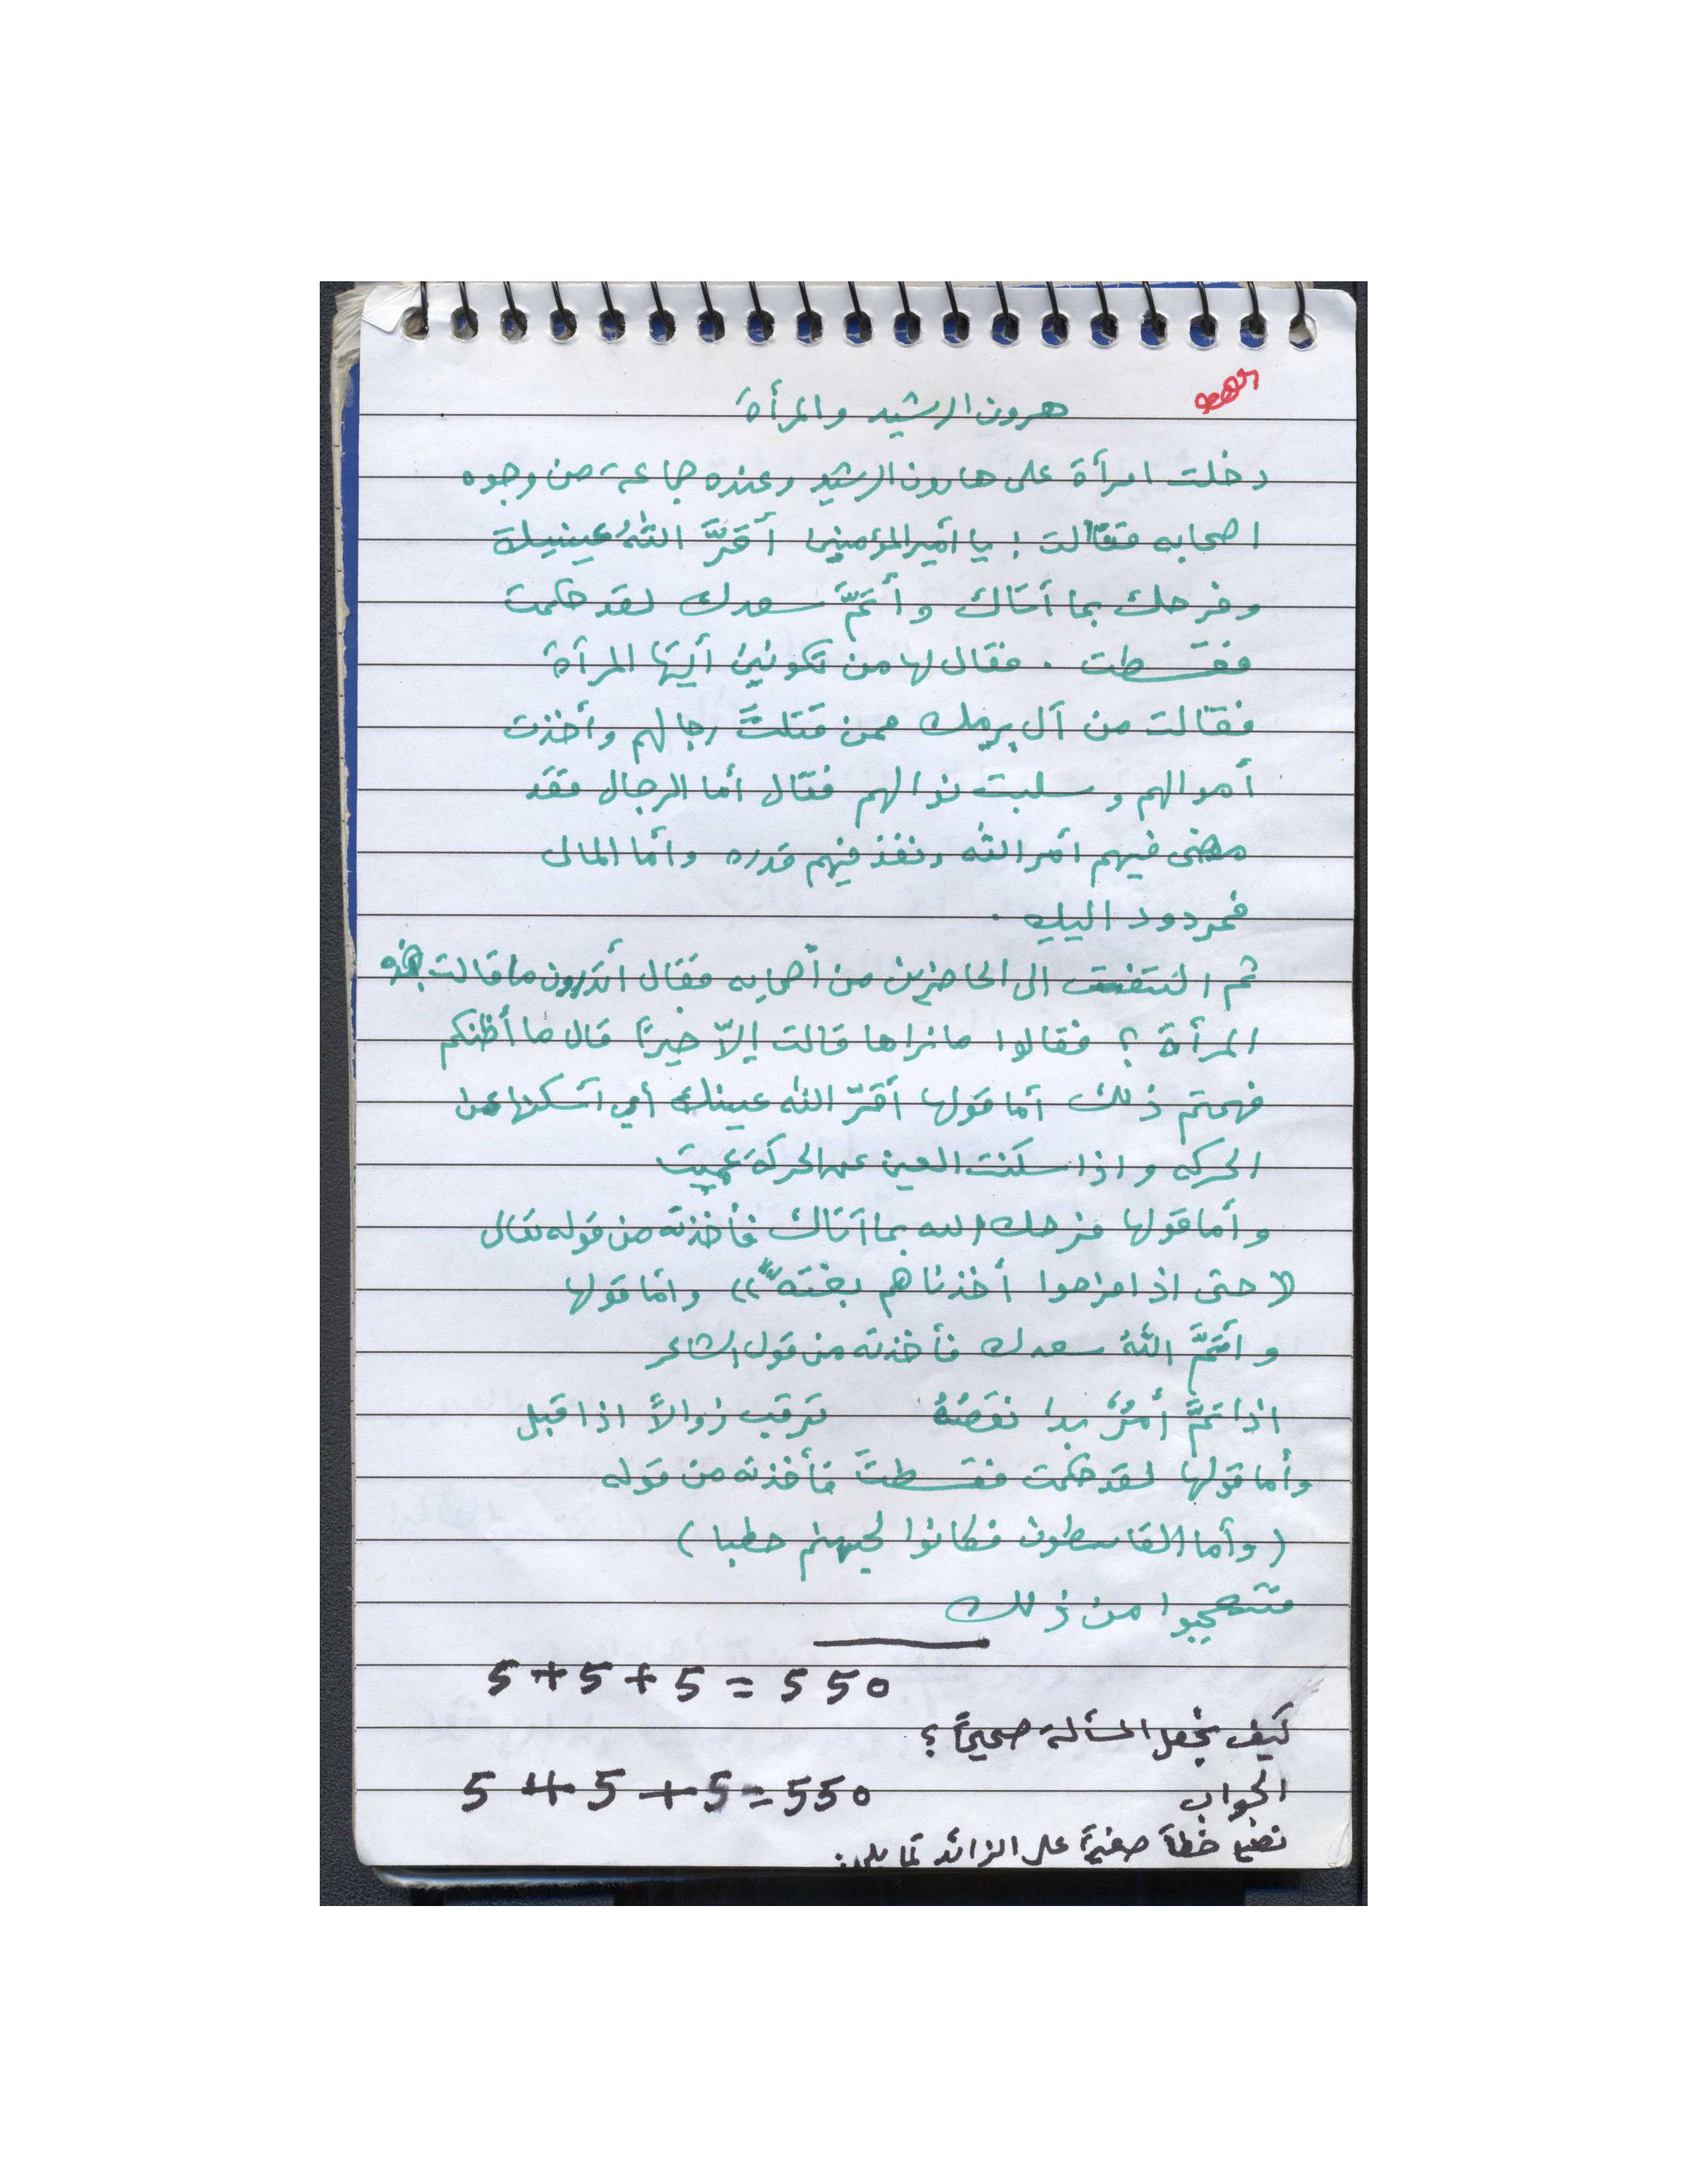 هرون الرشيد والمرأة
دخلت امرأة على هارون الرشيد وعنده جماعة من وجوه
اصحابه فقالت : يا أمير المؤمنين أقَرَّ اللهُ عينيك
وفرحك بما أتاك وأتمَّ سعدك لقد حكمت
فقسطت . فقال لها من تكونين أيتها المرأة
فقالت من آل برمك ممن قتلتَ رجالهم وأخذت
أموالهم وسلبت نوالهم فقال أما الرجال فقد
مضى فيهم أمر الله ونفذ فيهم قدره وأما المال
فمردود اليك .
ثم التفت الى الحاضرين من أصحابه فقال أتدرون ما قالت هذه
المرأة ؟ فقالوا ما نراها قالت إلاّ خيراً قال ما أظنكم
فهمتم ذلك أما قولها أقَرّ الله عينك أي أسكنها عن
الحركه واذا سكنت العين عن الحركة عميت
وأما قولها فرحك الله بما آتاك فأخذته من قوله تعالى
(( حتى اذا فرحوا أخذناهم بغتهً )) وأما قولها
وأتمَّ اللهُ سعدك فأخذته من قول الشاعر
اذا تمَّ أمرٌ بدا نقصُهُ ترقب زوالاً اذا قيل
وأما قولها لقد حكمت فقسطتَ فأخذته من قوله
( وأما القاسطون فكانوا لجهنم حطبا )
فتعجبوا من ذلك
5+5+5=550
كيف نجعل المسألة صحيحةً ؟
الجواب 5 4 5 + 5 = 550
نضع خطاً صغيراً على الزائد كما يلي: